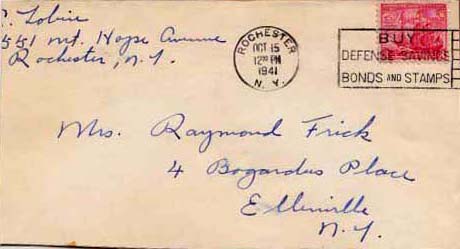 C. Lobire
551 Mt. Hope Avenue
Rochester, N.Y.
ROCHESTER
OCT 15
12 30 PM
1941
N. Y.
BUY
DEFENSE SAVINGS
BONDS AND STAMPS
Mrs. Raymond Frick
4 Bogardus Place
Ellenville
N.Y.